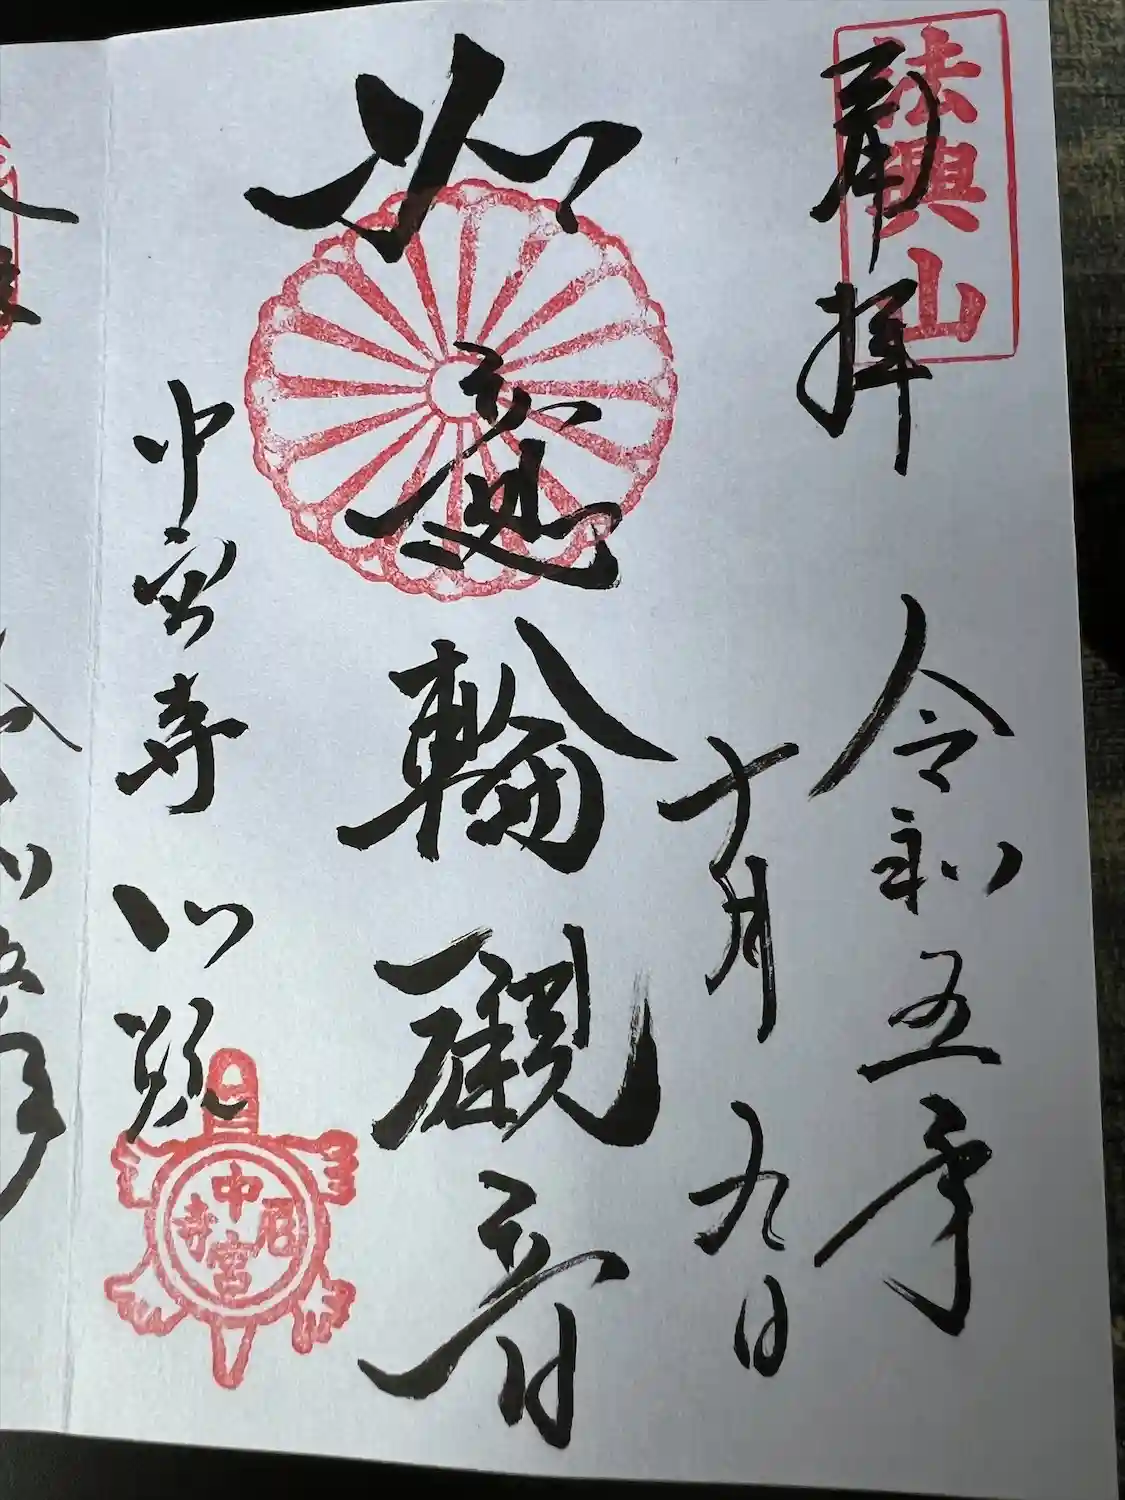 法興山
奉拝
令和五年
十月九日
如意輪観音
中宮寺門跡
中宮尼寺